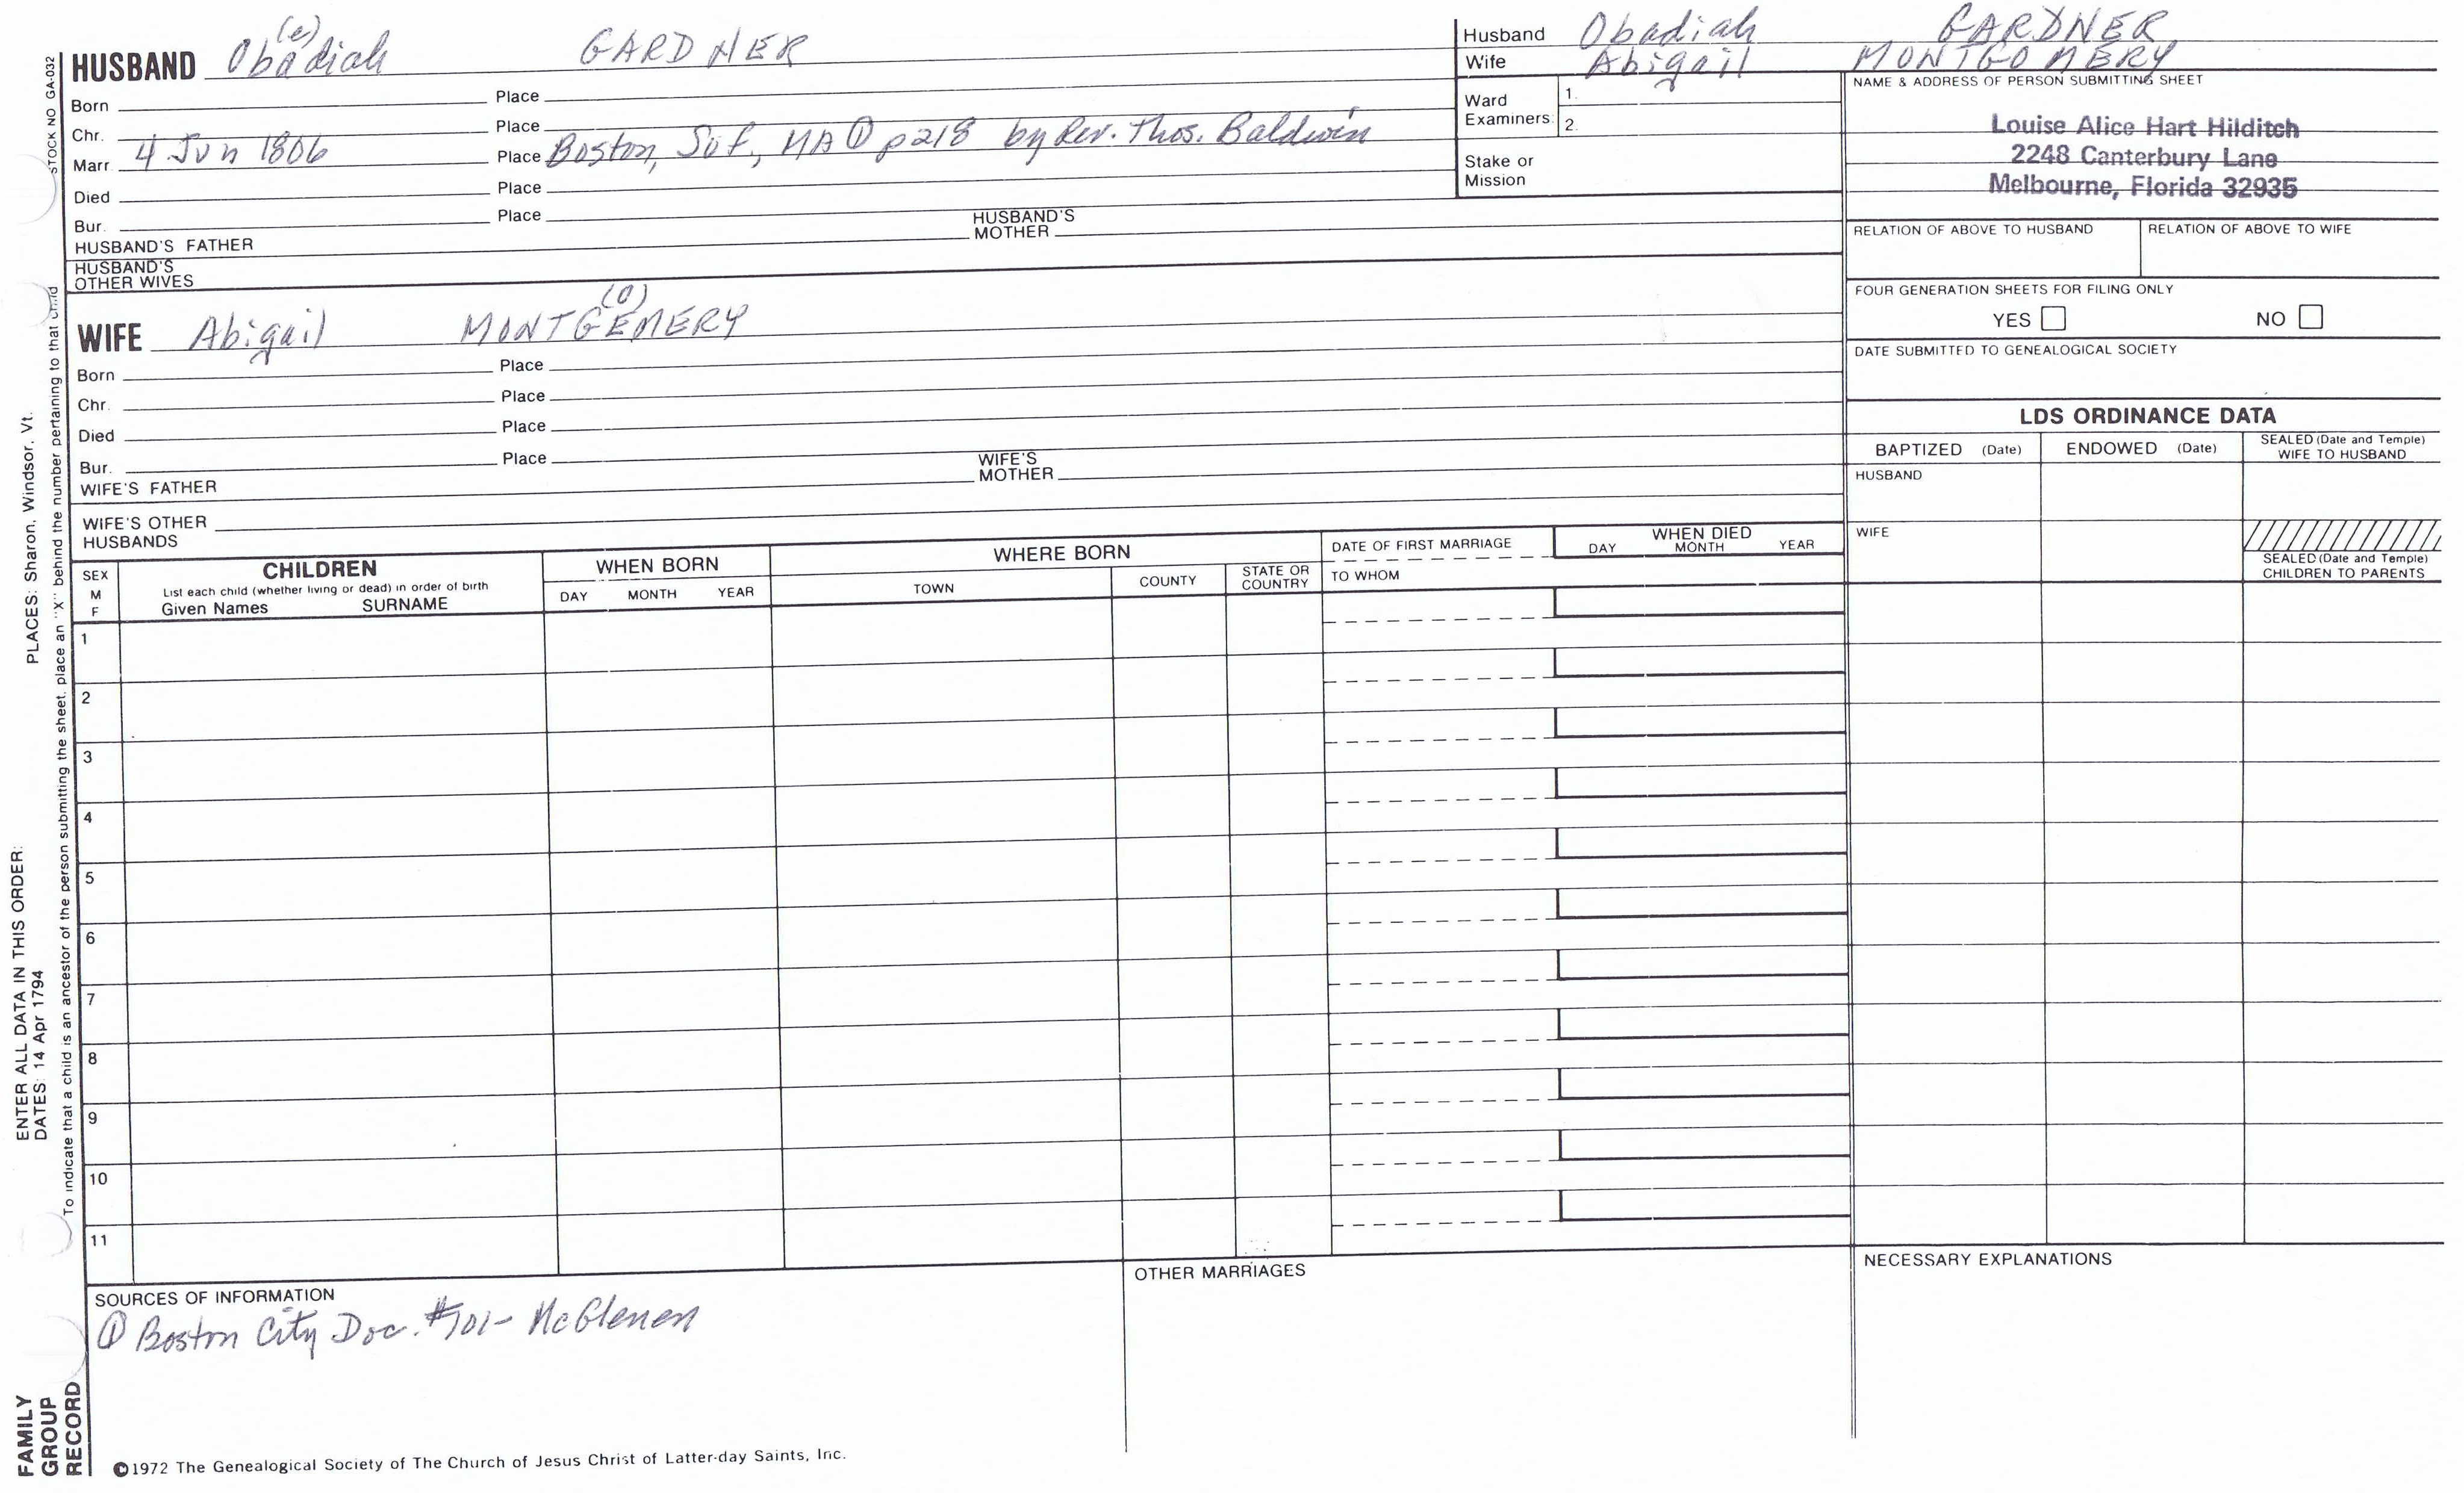 (e)
HUSBAND Obadiah GARDNER
Born Place
Chr. Place
Marr. 4 Jun 1806 Place Boston, Suf., MA ① p218 by Rev. Thos. Baldwin
Died Place
Bur. Place
HUSBAND'S FATHER HUSBAND'S MOTHER
HUSBAND'S
OTHER WIVES
(o)
WIFE Abigail MONTGEMERY
Born Place
Chr. Place
Died Place
Bur. Place
WIFE'S FATHER WIFE'S MOTHER
WIFE'S OTHER
HUSBANDS
Husband Obadiah GARDNER
Wife Abigail MONTGOMERY
Ward
Examiners:
1.
2.
Stake or
Mission
NAME & ADDRESS OF PERSON SUBMITTING SHEET
Louise Alice Hart Hilditch
2248 Canterbury Lane
Melbourne, Florida 32935
RELATION OF ABOVE TO HUSBAND RELATION OF ABOVE TO WIFE
FOUR GENERATION SHEETS FOR FILING ONLY
YES NO
DATE SUBMITTED TO GENEALOGICAL SOCIETY
LDS ORDINANCE DATA
BAPTIZED (Date) ENDOWED (Date) SEALED (Date and Temple)
WIFE TO HUSBAND
HUSBAND
WIFE
SEALED (Date and Temple)
CHILDREN TO PARENTS
SEX
M
F
CHILDREN
List each child (whether living or dead) in order of birth
Given Names SURNAME
WHEN BORN
DAY MONTH YEAR
WHERE BORN
TOWN COUNTY STATE OR
COUNTRY
DATE OF FIRST MARRIAGE
TO WHOM
WHEN DIED
DAY MONTH YEAR
1
2
3
4
5
6
7
8
9
10
11
SOURCES OF INFORMATION
① Boston City Doc. #101- McGlenen
OTHER MARRIAGES
NECESSARY EXPLANATIONS
©1972 The Genealogical Society of The Church of Jesus Christ of Latter-day Saints, Inc.
STOCK NO GA-032
To indicate that a child is an ancestor of the person submitting the sheet, place an "X" behind the number pertaining to that child
ENTER ALL DATA IN THIS ORDER:
DATES: 14 Apr 1794
PLACES: Sharon, Windsor, Vt.
FAMILY
GROUP
RECORD